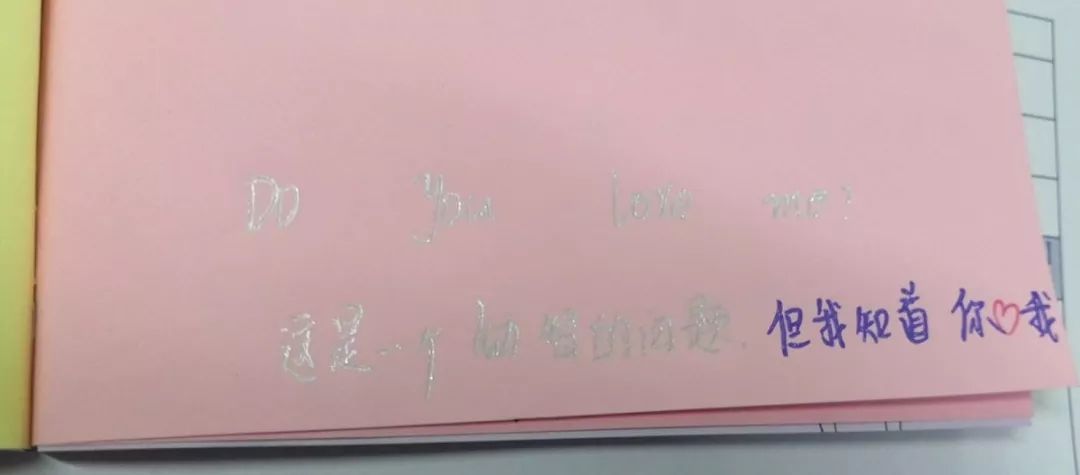 DO you love me?
这是一个幼稚的问题.但我知道你♡我